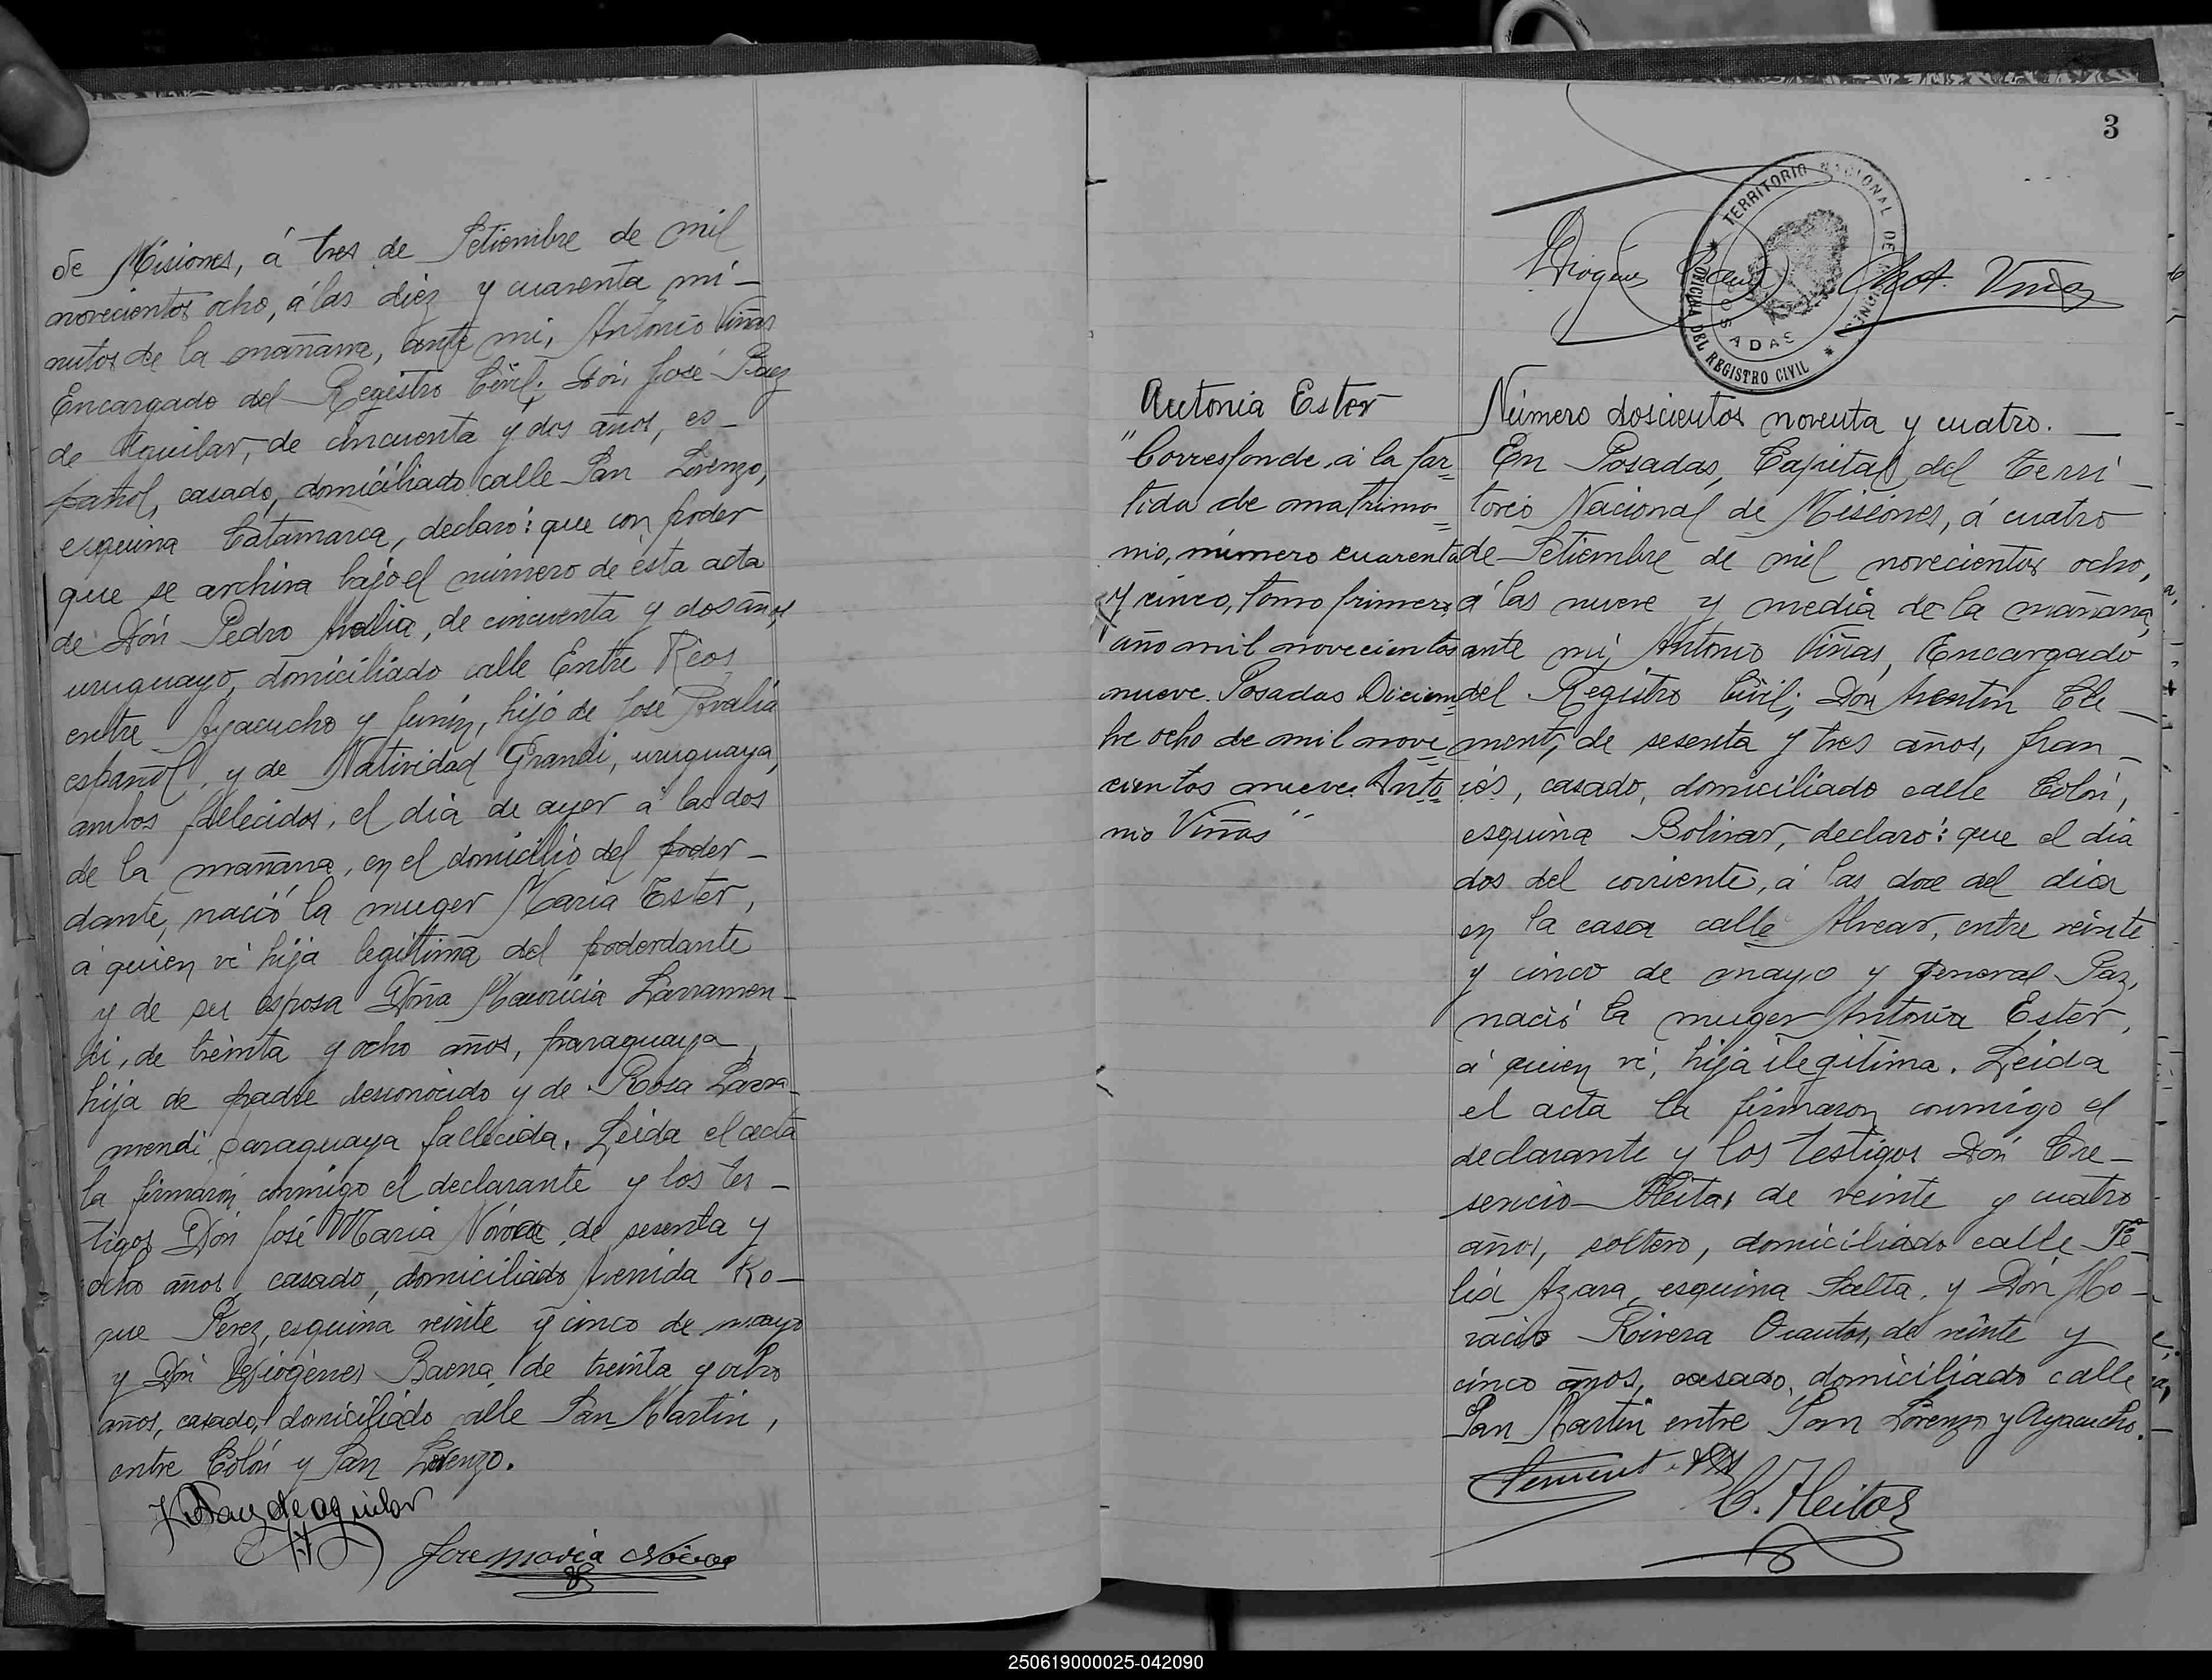 de Misiones, á tres de Setiembre de mil
novecientos ocho, á las diez y cuarenta mi-
nutos de la mañana, ante mi, Antonio Viñas
Encargado del Registro Civil; Dón José Baez
de Aguilar, de cincuenta y dos años, es-
pañol, casado, domiciliado calle San Lorenzo,
esquina Catamarca, declaró: que con poder
que se archiva bajo el número de esta acta
de Dón Pedro Avalia, de cincuenta y dos años
uruguayo, domiciliado calle Entre Rios
entre Ayacucho y Junín, hijo de José Avalia
español, y de Natividad Grandi, uruguaya,
ambos fallecidos, el dia de ayer á las dos
de la mañana, en el domicilio del poder-
dante, nació la muger Maria Ester,
á quien vi hija legitima del poderdante
y de su esposa Dña Mauricia Larramen-
di, de treinta y ocho años, paraguaya,
hija de padre desconocido y de Rosa Larra-
mendi paraguaya fallecida. Leida el acta
la firmaron conmigo el declarante y los tes-
tigos Dón José Maria Nóvoa, de sesenta y
ocho años, casado, domiciliado Avenida Ro-
que Perez, esquina veinte y cinco de mayo
y Dón Diógenes Baena, de treinta y ocho
años, casado, domiciliado calle San Martin,
entre Colón y San Lorenzo.
J Baez de aguilar
Jose maria Nóvoa
3
Diogenes Baena Ant. Viñas
TERRITORIO NACIONAL DE MISIONES
OFICINA DEL REGISTRO CIVIL
POSADAS
Antonia Ester
"Corresponde á la par-
tida de matrimo-
nio, número cuarenta
y cinco, tomo primero
año mil novecientos
nueve. Posadas Diciem-
bre ocho de mil nove-
cientos nueve. Anto-
nio Viñas"
Número doscientos noventa y cuatro.
En Posadas, Capital del Terri-
torio Nacional de Misiones, á cuatro
de Setiembre de mil novecientos ocho,
á las nueve y media de la mañana,
ante mi, Antonio Viñas, Encargado
del Registro Civil; Dón Arentin Cle-
ment, de sesenta y tres años, fran-
cés, casado, domiciliado calle Colón,
esquina Bolivar, declaró: que el dia
dos del corriente, á las doce del dia
en la casa calle Alvear, entre veinte
y cinco de mayo y general Paz,
nació la muger Antonia Ester,
á quien vi, hija ilegitima. Leida
el acta la firmaron conmigo el
declarante y los testigos Dón Cre-
sencio Heitor de veinte y cuatro
años, soltero, domiciliado calle Fé-
lix Azara, esquina Salta, y Dón Ho-
racio Rivera Ocantos, de veinte y
cinco años, casado, domiciliado calle
San Martin entre San Lorenzo y Ayacucho.
Clement
C. Heitor
250619000025-042090